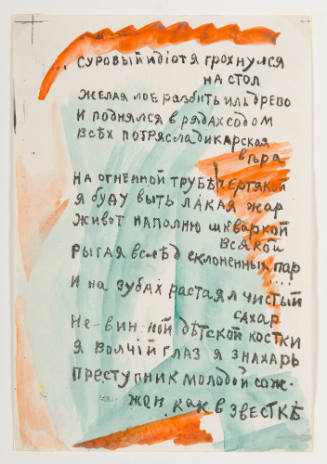 суровый идіот я грохнулся
на стол
желая лоб разбить иль древо
и поднялся в рядах содом
всѣх потрясла дикарская
вѣра
на огненной трубѣ чертякой
я буду выть лакая жар
живот наполню шкваркой
всякой
рыгая вслѣд склоненных пар
....
и на зубах растаял чистый
сахар
не-винной дѣтской костки
я волчій глаз я знахарь
преступник молодой сож-
жен как в звесткѣ